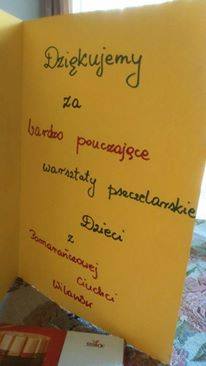 Dziękujemy
za
bardzo pouczające
warsztaty pszczelarskie
Dzieci
z
Pomarańczowej
Ciuchci
Wilanów